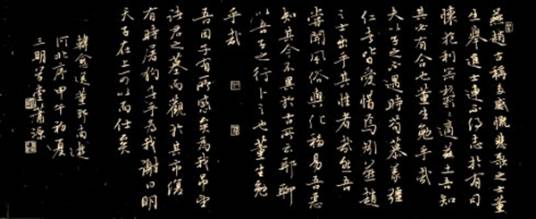 燕趙古稱多感慨悲歌之士董
生舉進士連不得志於有司
懷抱利器鬱鬱適茲土吾知
其必有合也董生勉乎哉
夫以子之不遇時苟慕義彊
仁者皆愛惜焉矧燕趙
之士出乎其性者哉然吾
嘗聞風俗與化移易吾惡
知其今不異於古所云邪聊
以吾子之行卜之也董生勉
乎哉
吾因子有所感矣為我弔望
諸君之墓而觀於其市復
有昔時屠狗者乎為我謝曰明
天子在上可以出而仕矣
韓愈送董邵南遊
河北序甲午初夏
三明